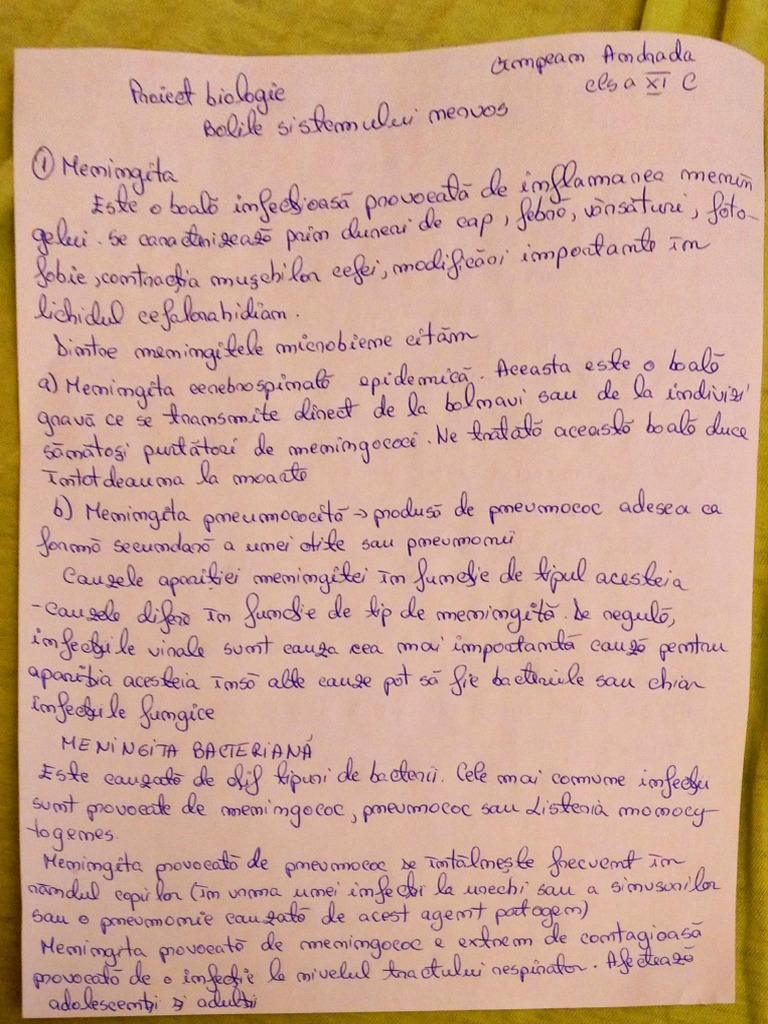 Câmpean Andrada
cls a XI C
Proiect biologie
Bolile sistemului nervos
① Meningita
Este o boală infecțioasă provocată de inflamarea menin
gelui. Se caracterizează prin dureri de cap, febră, vărsături, foto-
fobie, contracția mușchilor cefei, modificări importante în
lichidul cefalorahidian.
Dintre meningitele microbiene cităm
a) Meningita cerebrospinală epidemică. Aceasta este o boală
gravă ce se transmite direct de la bolnavi sau de la indivizi
sănătoși purtători de meningococi. Ne tratată această boală duce
întotdeauna la moarte
b) Meningita pneumococită → produsă de pneumococ adesea ca
formă secundară a unei otite sau pneumonii
Cauzele apariției meningitei în funcție de tipul acesteia
- Cauzele diferă în funcție de tip de meningită. De regulă,
infecțiile virale sunt cauza cea mai importantă cauză pentru
apariția acesteia însă alte cauze pot să fie bacteriile sau chiar
infecțiile fungice
MENINGITA BACTERIANĂ
Este cauzată de dif tipuri de bacterii. Cele mai comune infecții
sunt provocate de meningococ, pneumococ sau Listeria monocy-
togenes.
Meningita provocată de pneumococ se întâlnește frecvent în
rândul copiilor (în urma unei infecții la urechi sau a sinusurilor
sau o pneumonie cauzată de acest agent patogen)
Meningita provocată de meningococ e extrem de contagioasă
provocată de o infecție la nivelul tractului respirator. Afectează
adolescenții și adulții